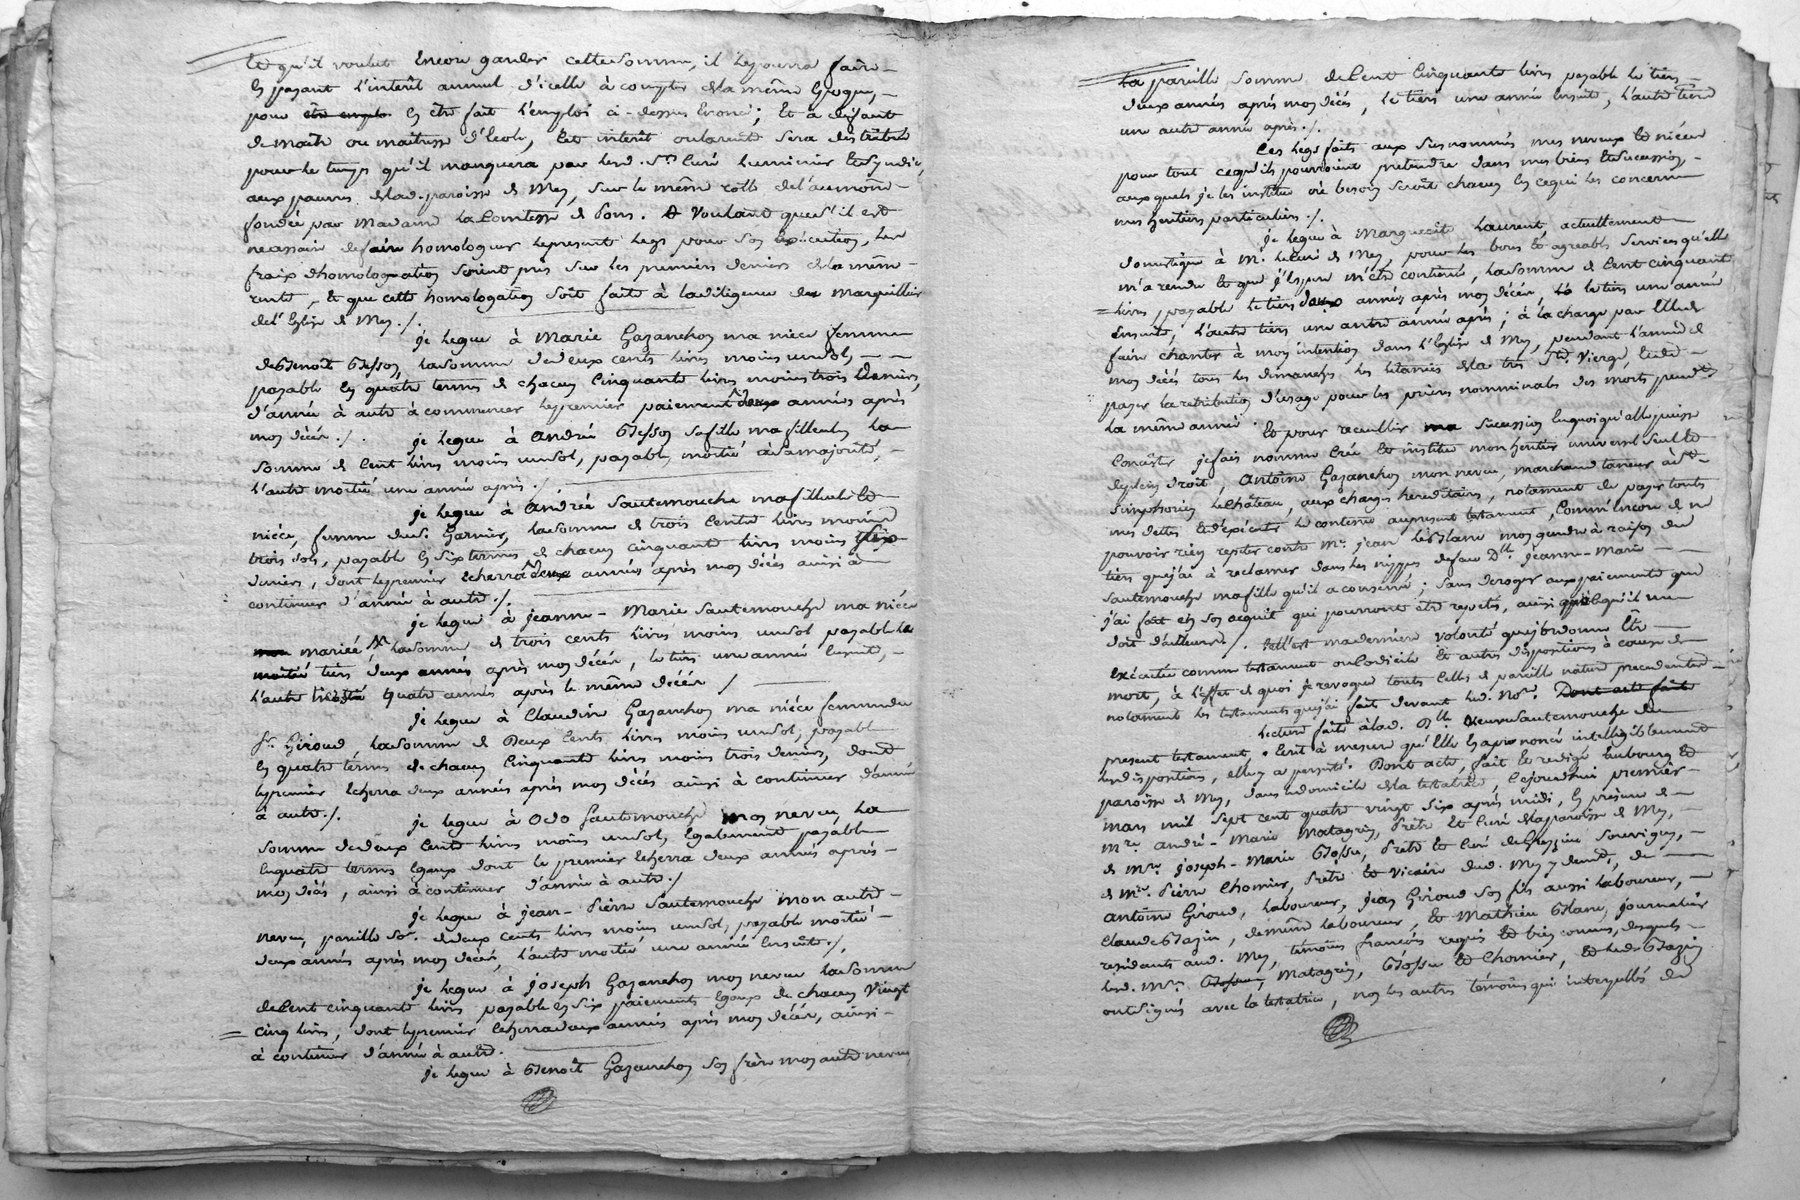 et qu'il voulut encore garder cette somme, il le pourra faire
en payant l'interêt annuel d'icelle à compter de la même Epoque,
pour etre emplo en être fait l'emploi ci-dessus Enoncé; Et à deffaut
de maître ou maitresse d'Ecole, cet interêt ou la rente sera distribué
pour le temps qu'il manquera par lesd. Srs Curé Luminier et Syndic,
aux pauvres de lad. paroisse de Mey, sur le même rolle de l'aumône
fondée par Madame la Comtesse de Pons. Et voulant que s'il est
necessaire de faire homologuer le present legs pour son Execution, les
fraix d'homologation soient pris sur les premiers deniers de la même
rente, et que cette homologation soit faite à la diligence des Marguilliers
de l'Eglise de Mey./.
je legue à Marie Gazanchon ma niéce femme
de Benoît Besson, la somme de deux cents livres moins un sol,
payable en quatre termes de chacun Cinquante livres moins trois Deniers,
d'année à autre à commencer le premier paiement deux années après
mon décés./. je legue à Andrée Besson sa fille ma filleule, la
somme de Cent livres moins un sol, payable, moitié à sa majorité,
l'autre moitié une année après./
je legue à Andrée Sautemouche ma filleule et
niéce, femme du S. Garnier, la somme de trois Cents livres moins
trois sols, payable en six termes de chacun cinquante livres moins six
deniers, dont le premier Echerra deux années après mon décés ainsi à
continuer d'année à autre./
je legue à jeanne-Marie Sautemouche ma niéce
mariée la somme de trois cents livres moins un sol payable le
moitié tiers deux années après mon décés, le tiers une année Ensuite,
l'autre tiers quatre années après le même décés /
je legue à Claudine Gazanchon ma niéce femme du
Sr. Giroud, la somme de Deux Cents livres moins un sol, payable
en quatre termes de chacun Cinquante livres moins trois deniers, dont
le premier Echerra deux années après mon décés ainsi à continuer d'année
à autre./.
je legue à Odo Sautemouche mon neveu, la
somme de deux Cents livres moins un sol, Egalement payable
en quatre termes Egaux dont le premier Echerra deux années après
mon décés, ainsi à continuer d'année à autre./
je legue à jean-Pierre Sautemouche mon autre
neveu, pareille so. de deux cents livres moins un sol, payable moitié
deux années après mon décés, l'autre moitié une année Ensuite./.
je legue à joseph Gazanchon mon neveu la somme
de Cent cinquante livres payable en six paiements Egaux de chacun Vingt
cinq livres, dont le premier Echerra deux années après mon décés, ainsi
à continuer d'année à autre.
je legue à Benoît Gazanchon son frère mon autre neveu
la pareille somme de Cent Cinquante livres payable le tiers
deux années après mon décés, le tiers une année Ensuite, l'autre tiers
une autre année après./.
Les legs faits aux susnommés mes neveux et niéces
pour tout ce qu'ils pourroient pretendre dans mes biens et succession,
auxquels je les institue où besoin seroit chacun en ce qui les concerne
mes heritiers particuliers./.
je legue à Marguerite Laurent, actuellement
domestique à Mr. le Curé de Mey, pour les bons et agreables services qu'elle
m'a rendu et que j'espere m'être continué, la somme de Cent cinquante
livres, payable le tiers deux années après mon décés, le tiers une année
Ensuite, l'autre tiers une autre année après; à la charge par Elle de
faire chanter à mon intention dans l'Eglise de Mey, pendant l'année de
mon décés tous les dimanches les letanies de la très Ste. Vierge, et de
payer la retribution d'usage pour les prieres nominnales des morts pendt.
la même année. Et pour recueillir ma succession En quoi qu'elle puisse
Consister je fais nomme Crée et institue mon heritier universel seul et
de plein droit, Antoine Gazanchon mon neveu, marchand taneur à St.
Simphorien le Château, aux charges hereditaires, notament de payer touts
mes dettes et d'exécuter le contenu au present testament, Comm'encore de ne
pouvoir rien repeter contre Mr. jean LeBlanc mon gendre à raison du
tiers que j'ai à reclamer dans les nippes de feue Dlle. jeanne-Marie
Sautemouche ma fille qu'il a conservé; sans deroger aux paiements que
j'ai fait en son acquit qui pourront être repetés, ainsi que ce qu'il me
doit d'ailleurs./. Tell'est ma derniere volonté que j'ordonne être
exécutée comme testament ou Codicile et autres dispositions à cause de
mort, à l'effet de quoi je revoque touts Celles de pareille nature precedentes
notament les testaments que j'ai fait devant led. Nore. Dont acte fait
Lecture faite à lad. Dlle Veuve Sautemouche du
present testament, Ecrit à mesure qu'Elle En a prononcé intelligiblement
les dispositions, elle y a persisté. Dont acte, fait et redigé au bourg et
paroisse de Mey, dans le domicile de la testatrice, Cejourd'hui premier
mars mil sept cent quatre vingt six après midi, En présence de
Mre. andré-Marie Matagrin, Prêtre et Curé de la paroisse de Mey,
de Mre. joseph-Marie Gosse, Prêtre et Curé de Grezieu Souvigny,
de Mre. Pierre Chomier, Prêtre et Vicaire dud. Mey y demt., de
antoine Giroud, laboureur, jean Giroud son fils aussi laboureur,
Claude Bazin, de même laboureur, Et Mathieu Blanc, journalier
residents aud. Mey, témoins francois requis et bien connus, desquels
lesd. Mrs. Matagrin, Gosse et Chomier, et led. Bazin
ont signés avec la testatrice, non les autres témoins qui interpellés de